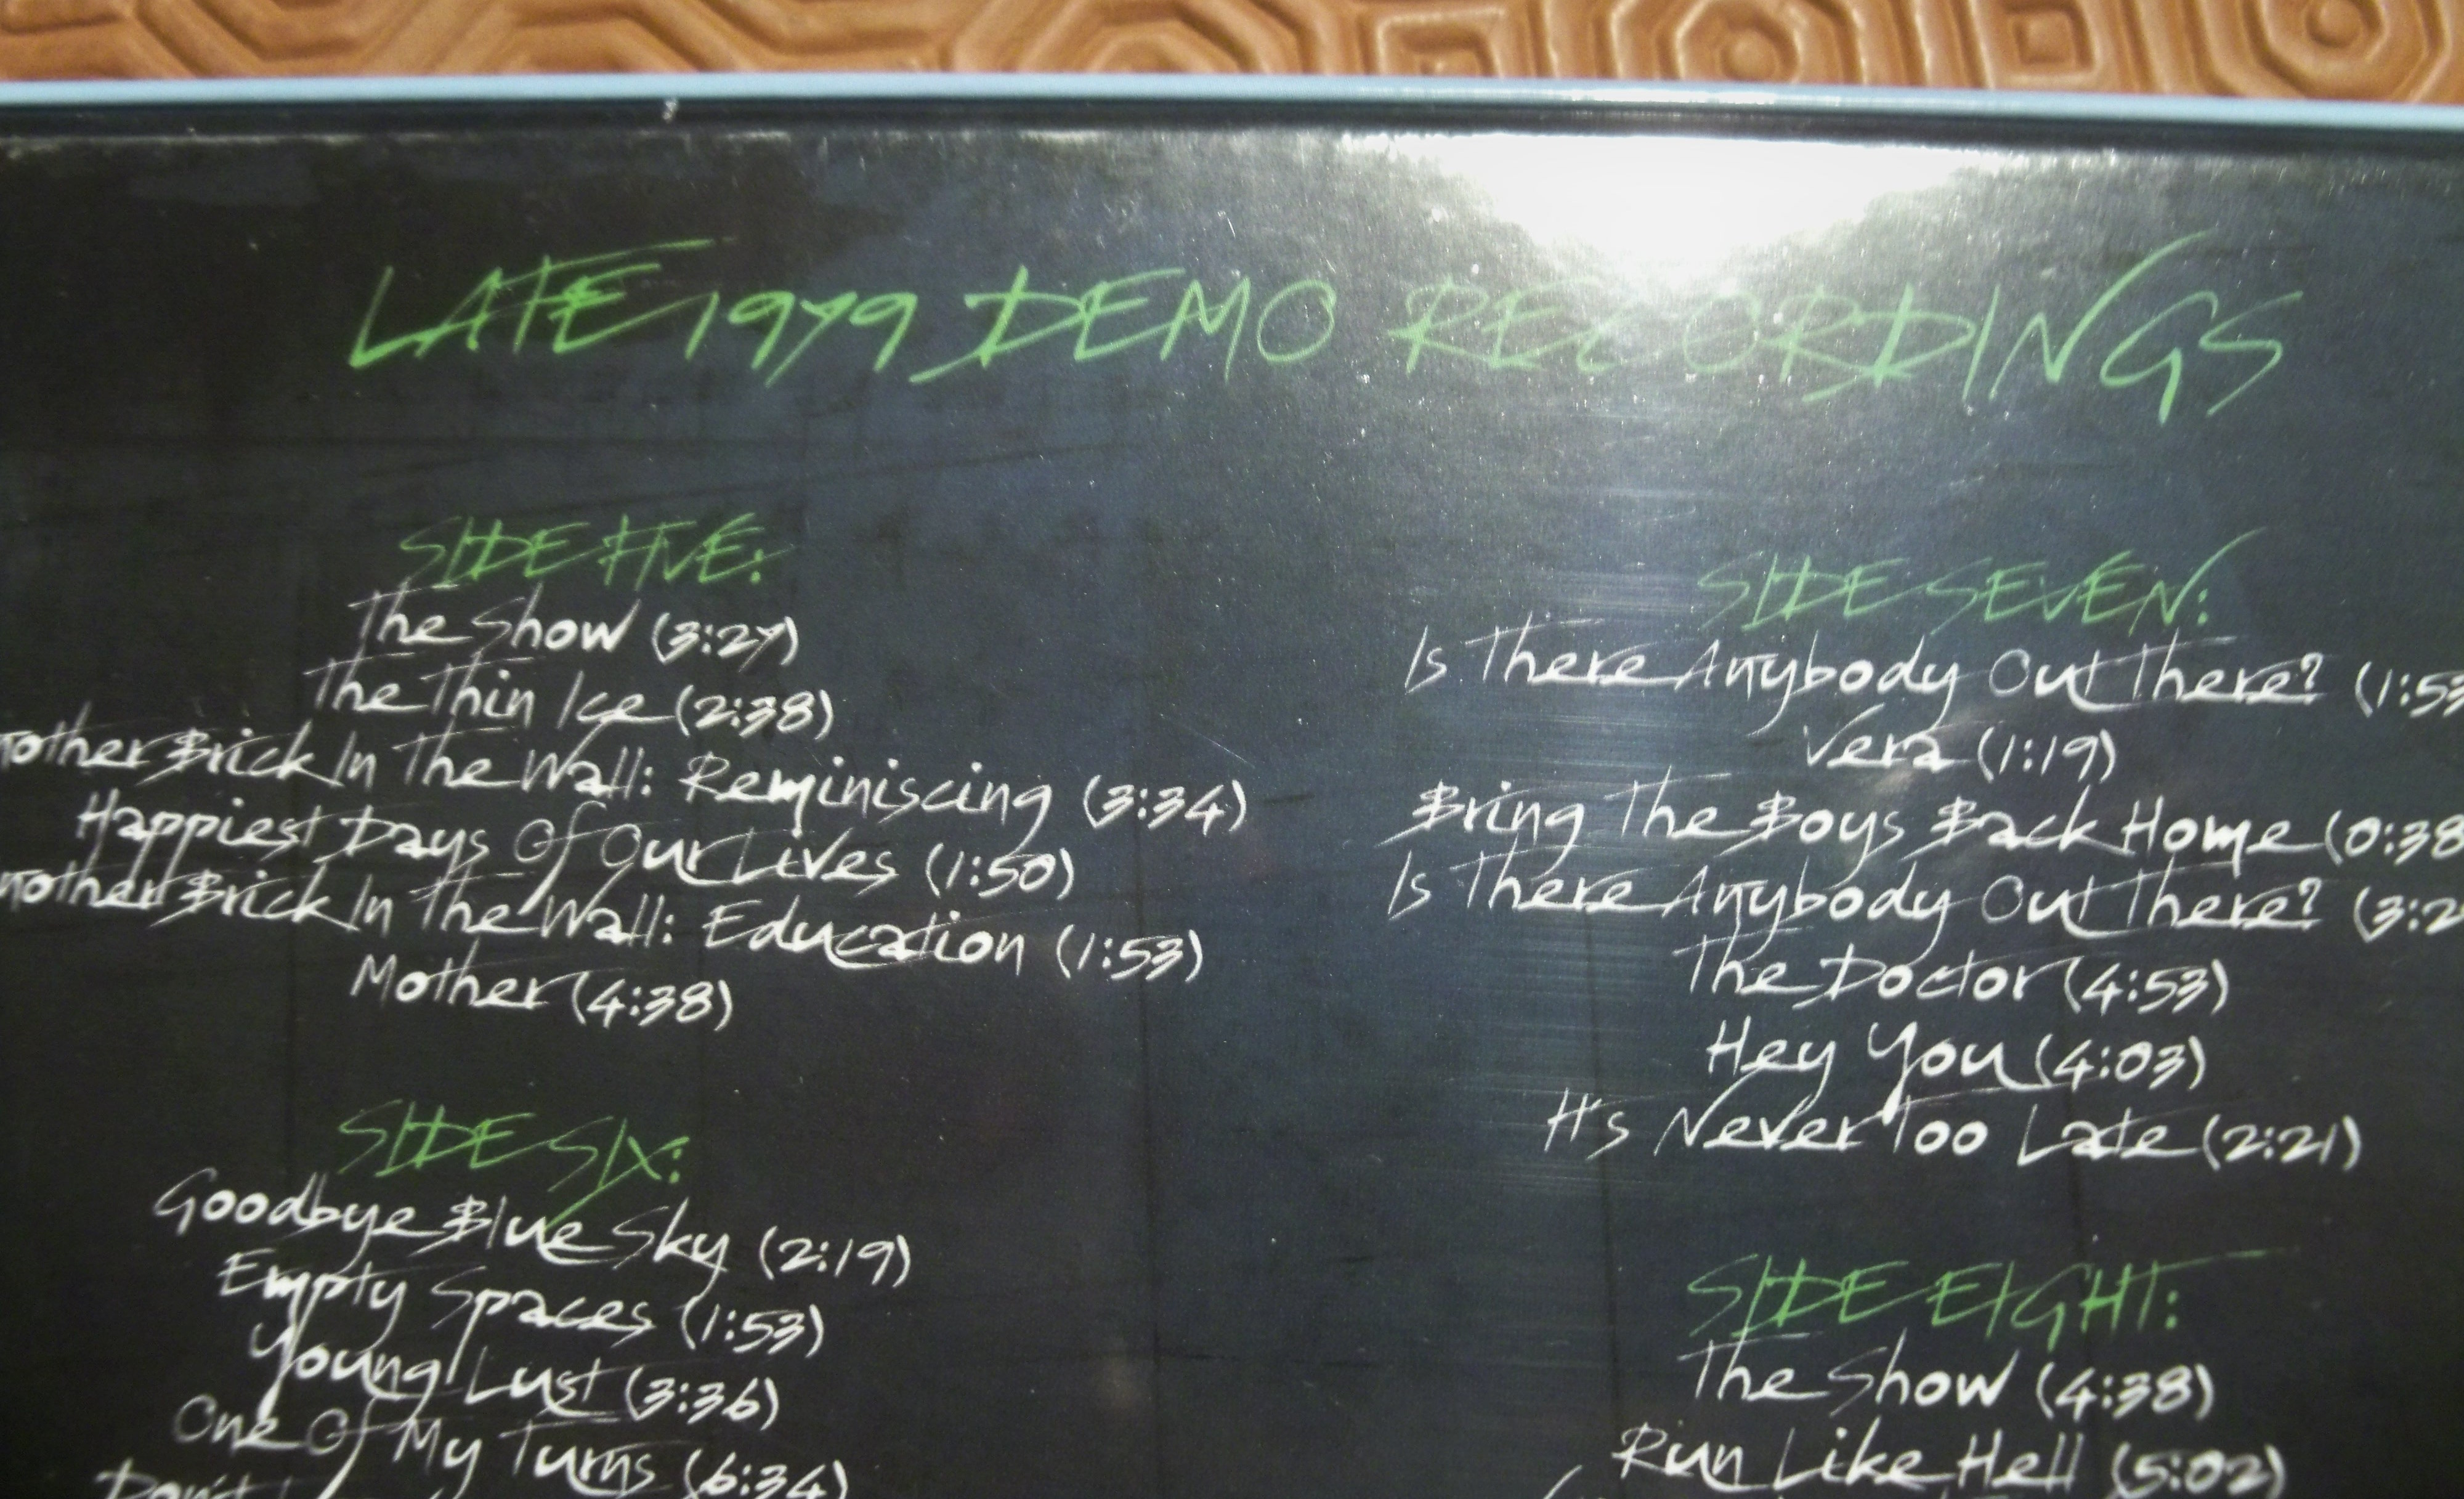 LATE 1979 DEMO RECORDINGS
SIDE FIVE:
The Show (3:27)
The Thin Ice (2:38)
nother Brick In The Wall: Reminiscing (3:34)
Happiest Days Of Our Lives (1:50)
nother Brick In The Wall: Education (1:53)
Mother (4:38)
SIDE SIX:
Goodbye Blue Sky (2:19)
Empty Spaces (1:53)
Young Lust (3:36)
One Of My Turns (6:34)
Don't
SIDE SEVEN:
Is There Anybody Out There? (1:53
Vera (1:19)
Bring The Boys Back Home (0:38
Is There Anybody Out There? (3:2
The Doctor (4:53)
Hey You (4:03)
It's Never Too Late (2:21)
SIDE EIGHT:
The Show (4:38)
Run Like Hell (5:02)